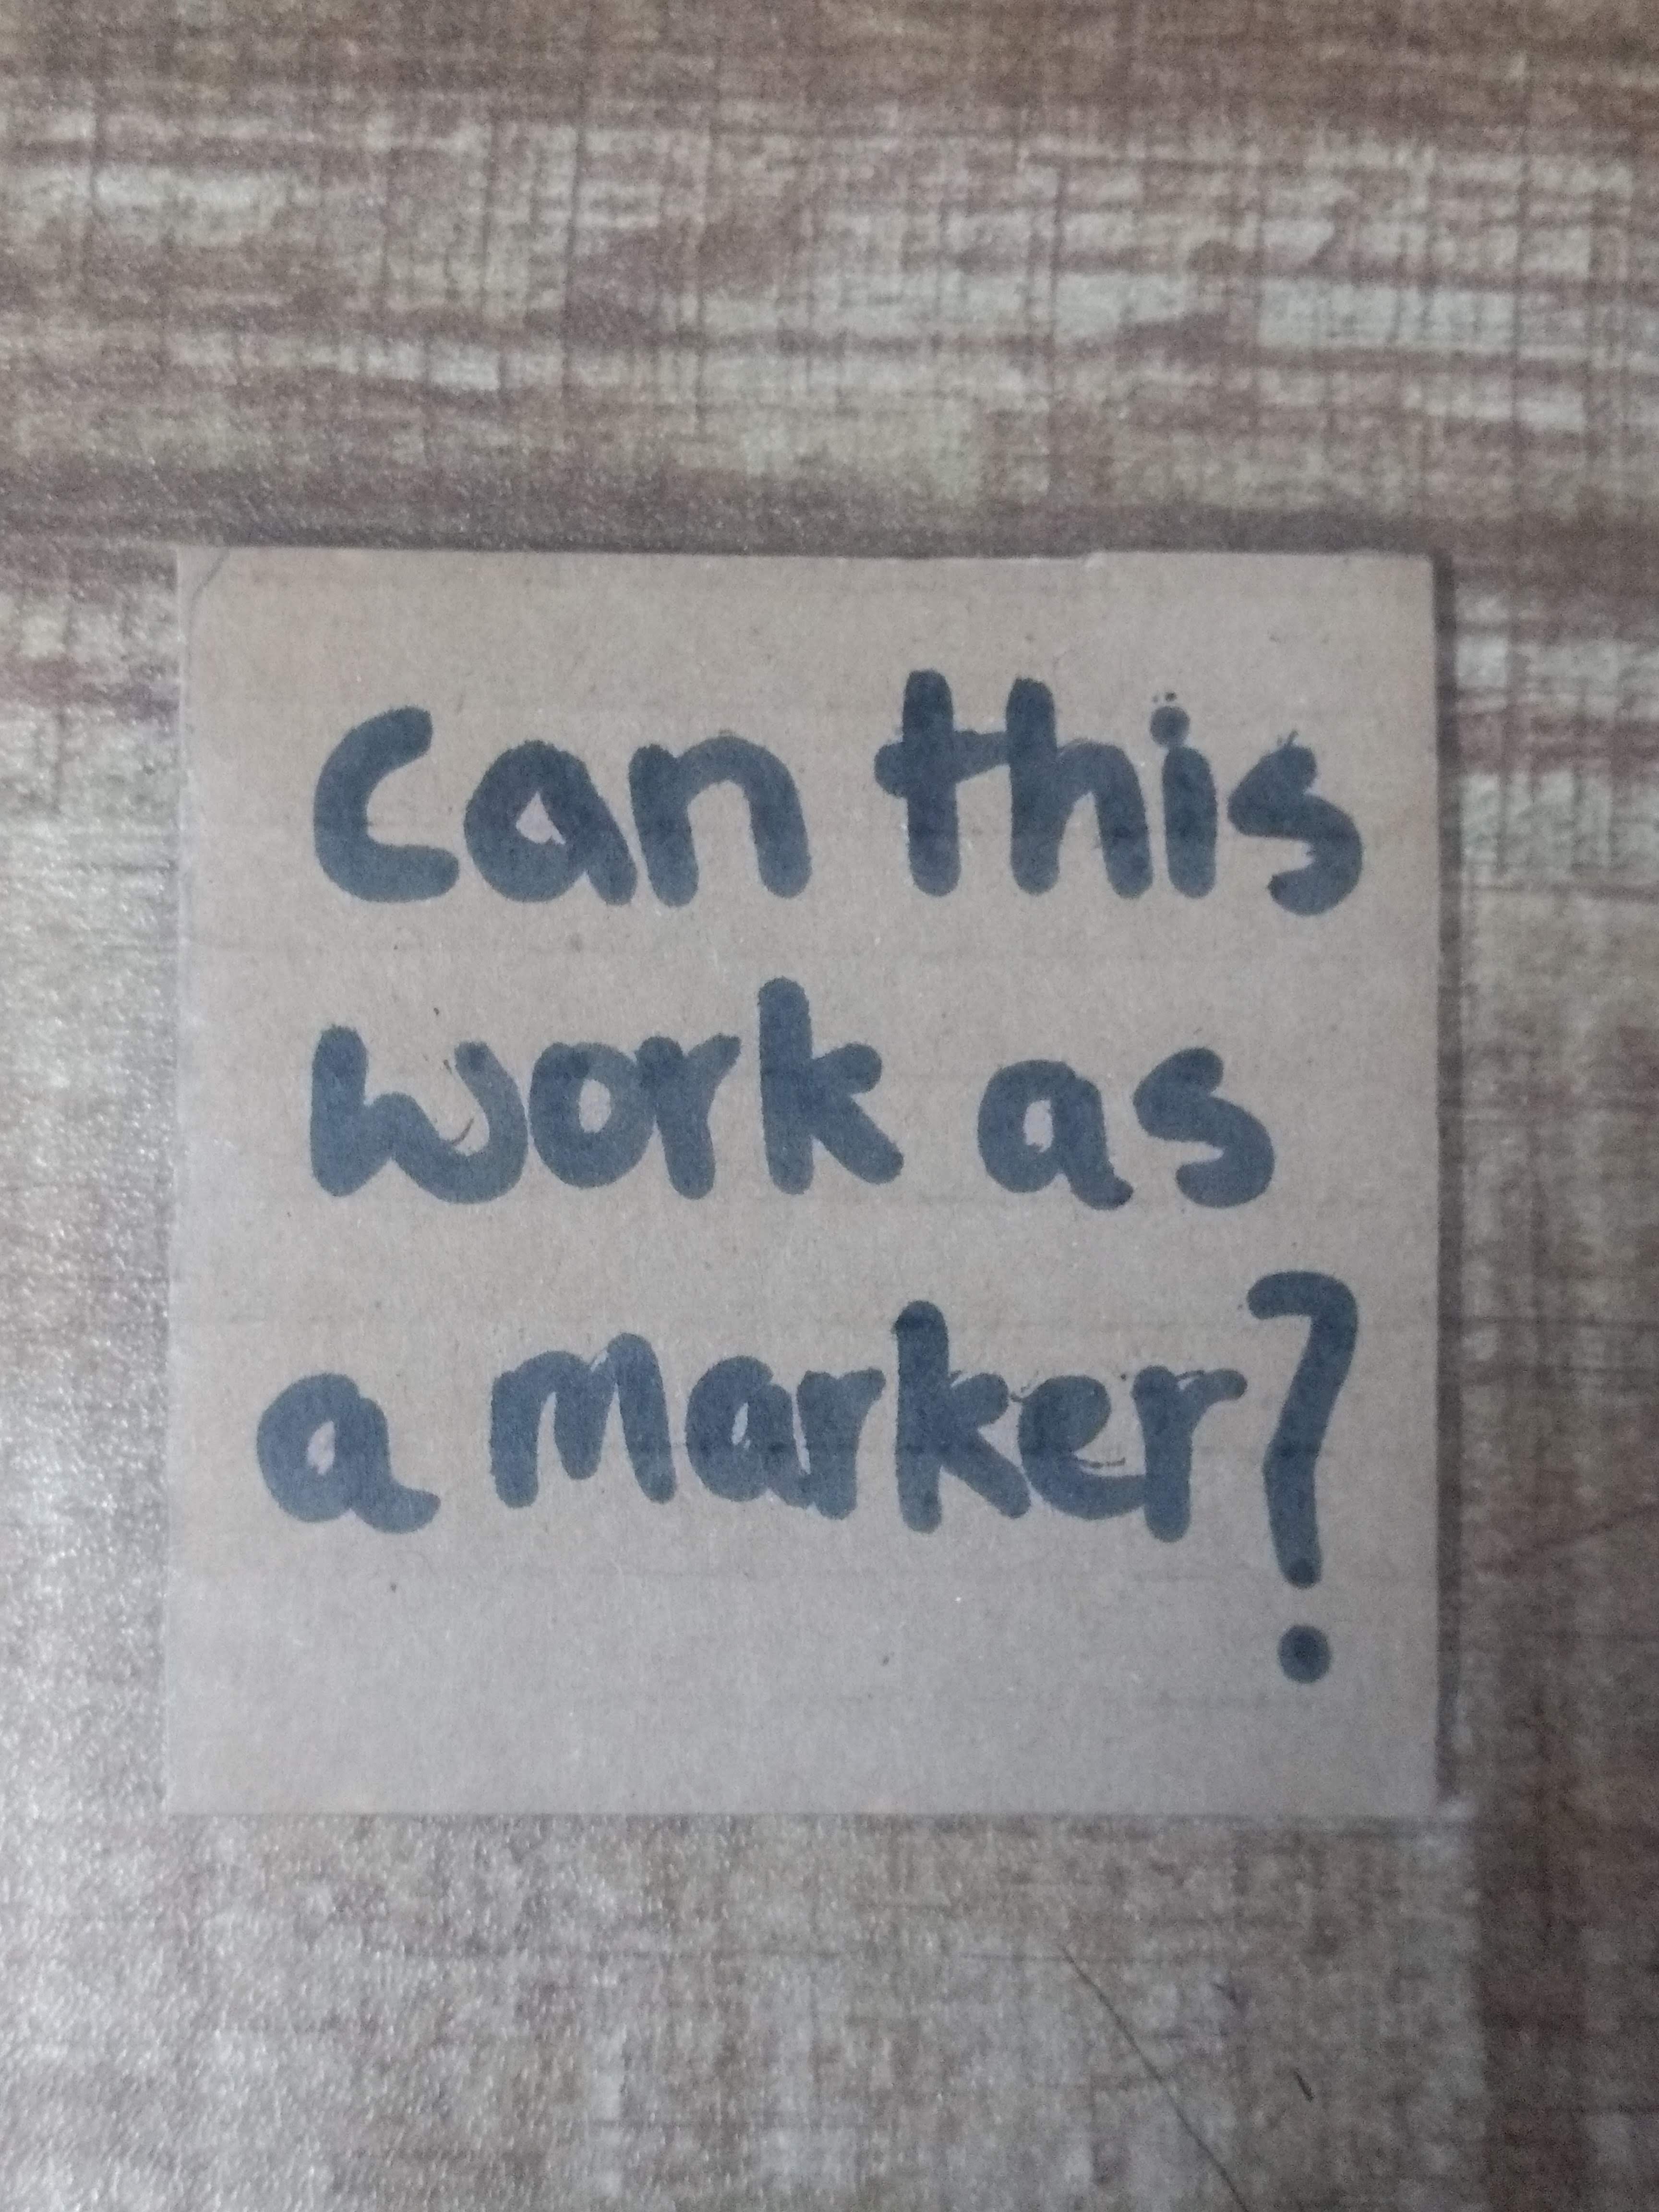 Can this
work as
a marker?